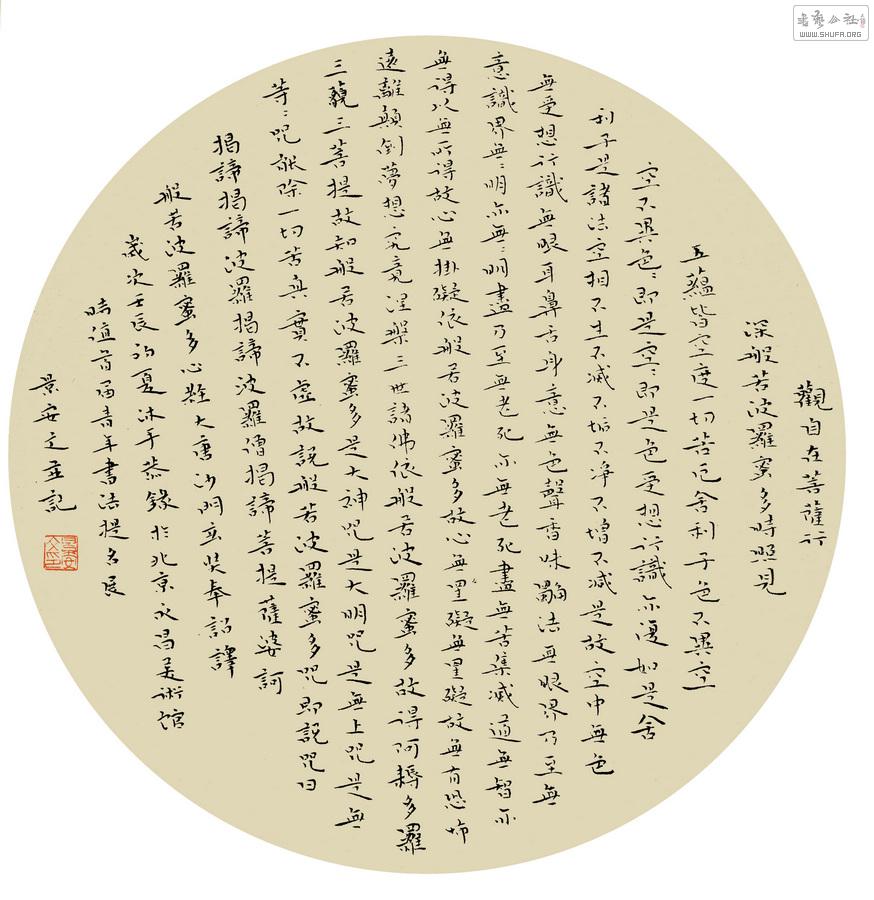 觀自在菩薩行
深般若波羅蜜多時照見
五蘊皆空度一切苦厄舍利子色不異空
空不異色〻即是空〻即是色受想行識亦復如是舍
利子是諸法空相不生不滅不垢不淨不增不減是故空中無色
無受想行識無眼耳鼻舌身意無色聲香味觸法無眼界乃至無
意識界無〻明亦無〻明盡乃至無老死亦無老死盡無苦集滅道無智亦
無得以無所得故心無掛礙依般若波羅蜜多故心無罣礙無罣礙故無有恐怖
遠離顛倒夢想究竟涅槃三世諸佛依般若波羅蜜多故得阿耨多羅
三藐三菩提故知般若波羅蜜多是大神咒是大明咒是無上咒是無
等〻咒能除一切苦真實不虛故說般若波羅蜜多咒即說咒曰
揭諦揭諦波羅揭諦波羅僧揭諦菩提薩婆訶
般若波羅蜜多心經大唐沙門玄奘奉詔譯
歲次壬辰初夏沐手恭錄於北京永昌美術館
時值首屆青年書法提名展
景安文並記
书艺公社
WWW.SHUFA.ORG